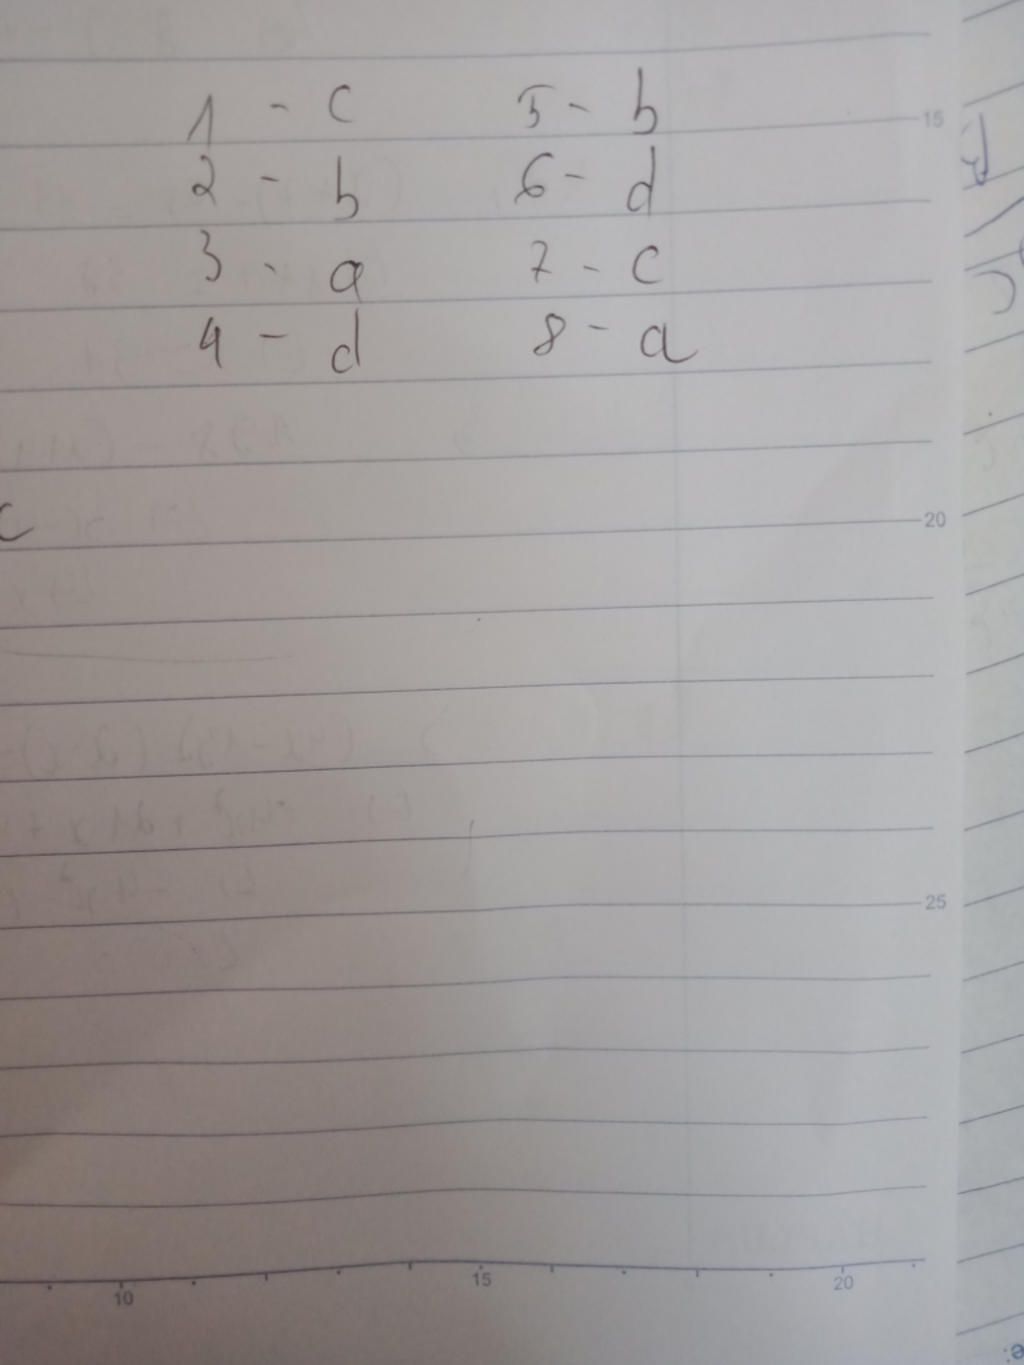 1 - c 5 - b
2 - b 6 - d
3 - a 7 - c
4 - d 8 - a
15
c
20
25
10 15 20